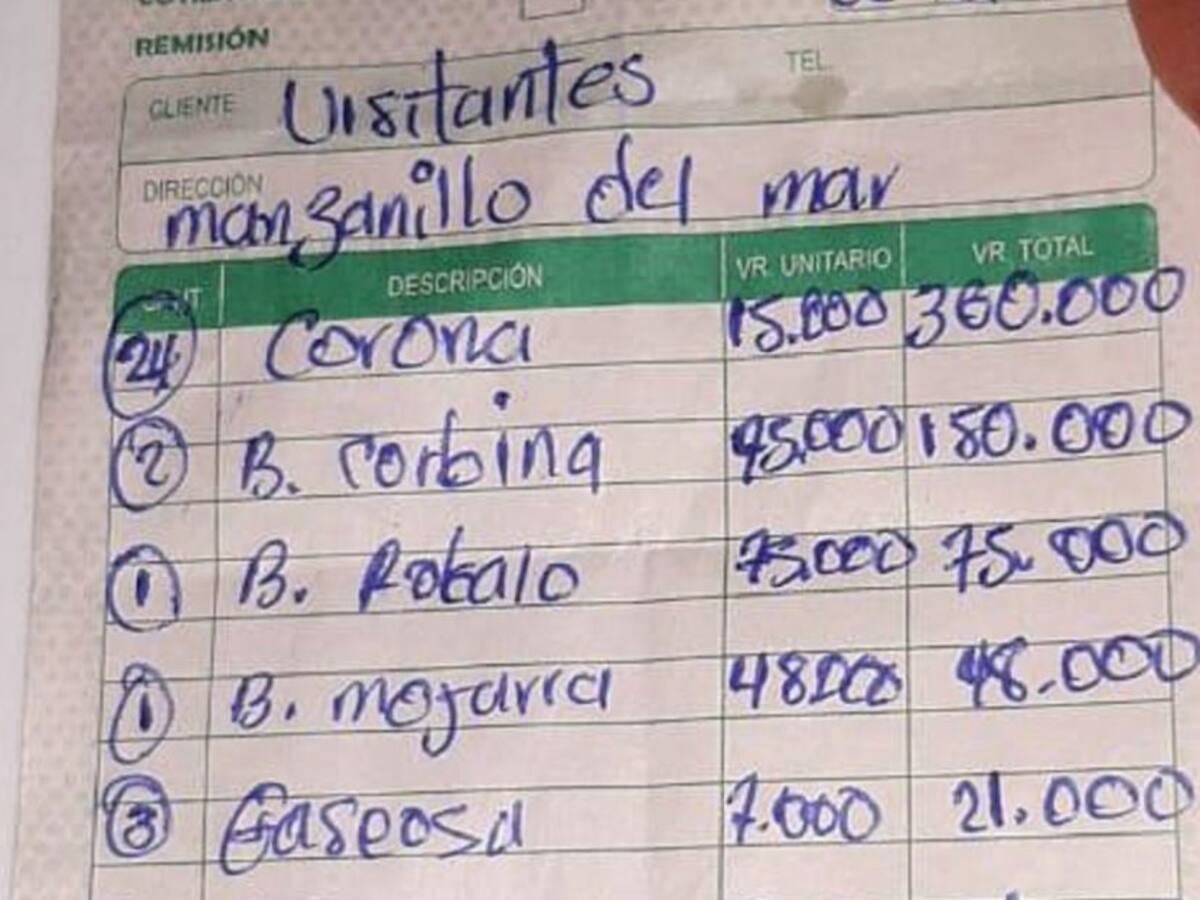 REMISIÓN
CLIENTE Visitantes TEL.
DIRECCIÓN manzanillo del mar
DESCRIPCIÓN VR. UNITARIO VR. TOTAL
24 Corona 15.000 360.000
2 B. corbina 150.000
1 B. Robalo 75.000 75.000
1 B. mojarra 48.000 48.000
3 Gaseosa 7.000 21.000